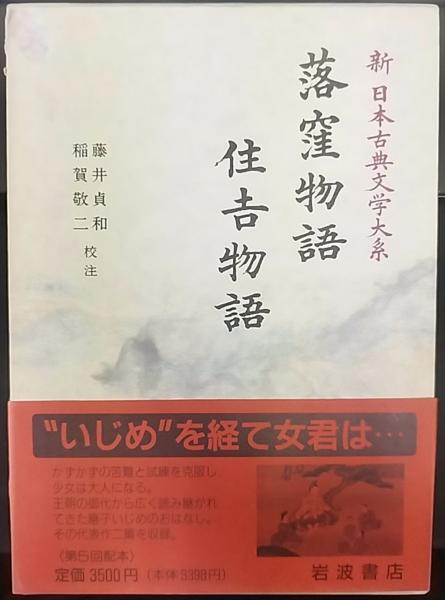 新日本古典文学大系
落窪物語
住吉物語
藤井貞和
稲賀敬二
校注
“いじめ”を経て女君は…
かずかずの苦難と試練を克服し、
少女は大人になる。
王朝の御代から広く読み継がれ
てきた継子いじめのおはなし。
その代表作二篇を収録。
〈第5回配本〉
定価3500円（本体3398円）
岩波書店